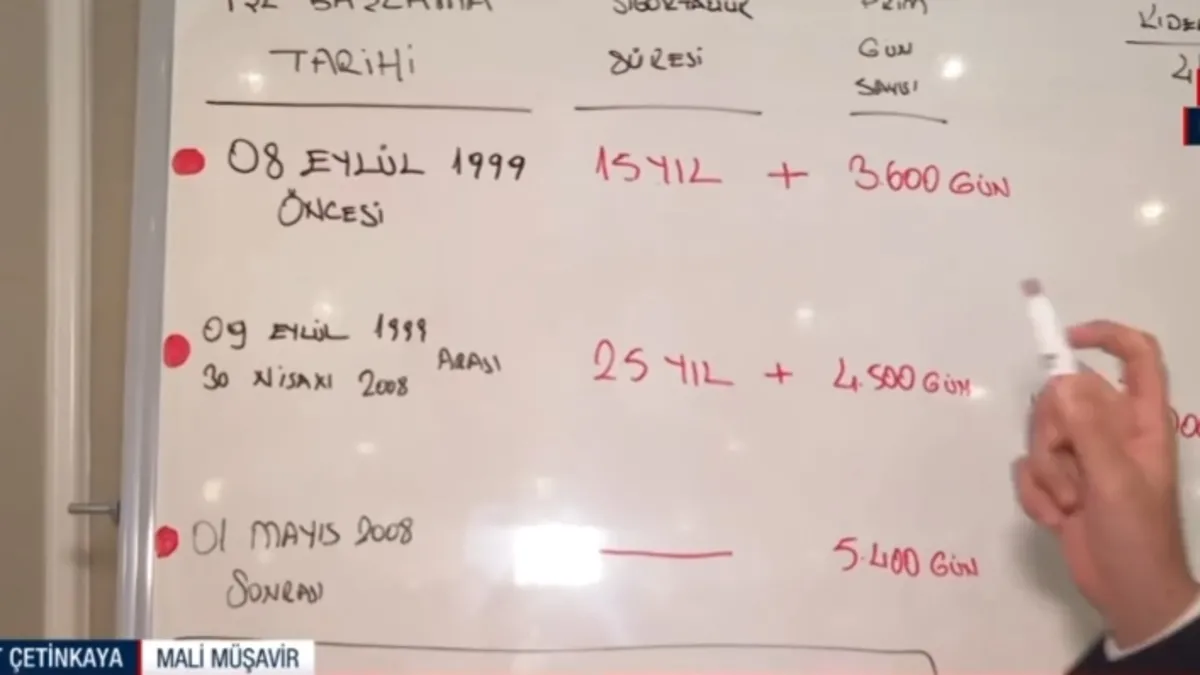 TARİHİ
SİGORTALILIK
SÜRESİ
PRİM
GÜN
SAYISI
08 EYLÜL 1999
ÖNCESİ
15 YIL + 3.600 GÜN
09 EYLÜL 1999
30 NİSAN 2008
ARASI
25 YIL + 4.500 GÜN
01 MAYIS 2008
SONRASI
5.400 GÜN
ÇETİNKAYA
MALİ MÜŞAVİR